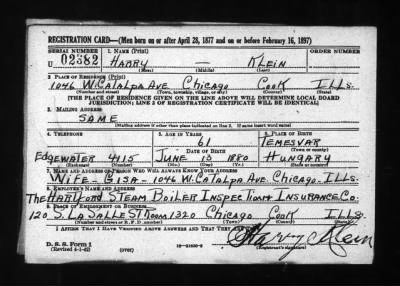 REGISTRATION CARD—(Men born on or after April 28, 1877 and on or before February 16, 1897)
SERIAL NUMBER 1. NAME (Print) ORDER NUMBER
U 02382 HARRY — KLEIN
(First) (Middle) (Last)
2. PLACE OF RESIDENCE (Print)
1046 W. CATALPA AVE CHICAGO COOK ILLS.
(Number and street) (Town, township, village, or city) (County) (State)
[THE PLACE OF RESIDENCE GIVEN ON THE LINE ABOVE WILL DETERMINE LOCAL BOARD
JURISDICTION; LINE 2 OF REGISTRATION CERTIFICATE WILL BE IDENTICAL]
3. MAILING ADDRESS
SAME
[Mailing address if other than place indicated on line 2. If same insert word same]
4. TELEPHONE 5. AGE IN YEARS 6. PLACE OF BIRTH
61 TEMESVAR
DATE OF BIRTH (Town or county)
EDGEWATER 4115 JUNE 13 1880 HUNGARY
(Exchange) (Number) (Mo.) (Day) (Yr.) (State or country)
7. NAME AND ADDRESS OF PERSON WHO WILL ALWAYS KNOW YOUR ADDRESS
WIFE - GISA - 1046 W. CATALPA AVE CHICAGO - ILLS.
8. EMPLOYER'S NAME AND ADDRESS
THE HARTFORD STEAM BOILER INSPECTION & INSURANCE CO.
9. PLACE OF EMPLOYMENT OR BUSINESS
120 S. LA SALLE ST ROOM 1320 CHICAGO COOK ILLS.
(Number and street or R. F. D. number) (Town) (County) (State)
I AFFIRM THAT I HAVE VERIFIED ABOVE ANSWERS AND THAT THEY ARE TRUE.
D. S. S. Form 1
(Revised 4-1-42) (over) Harry Klein